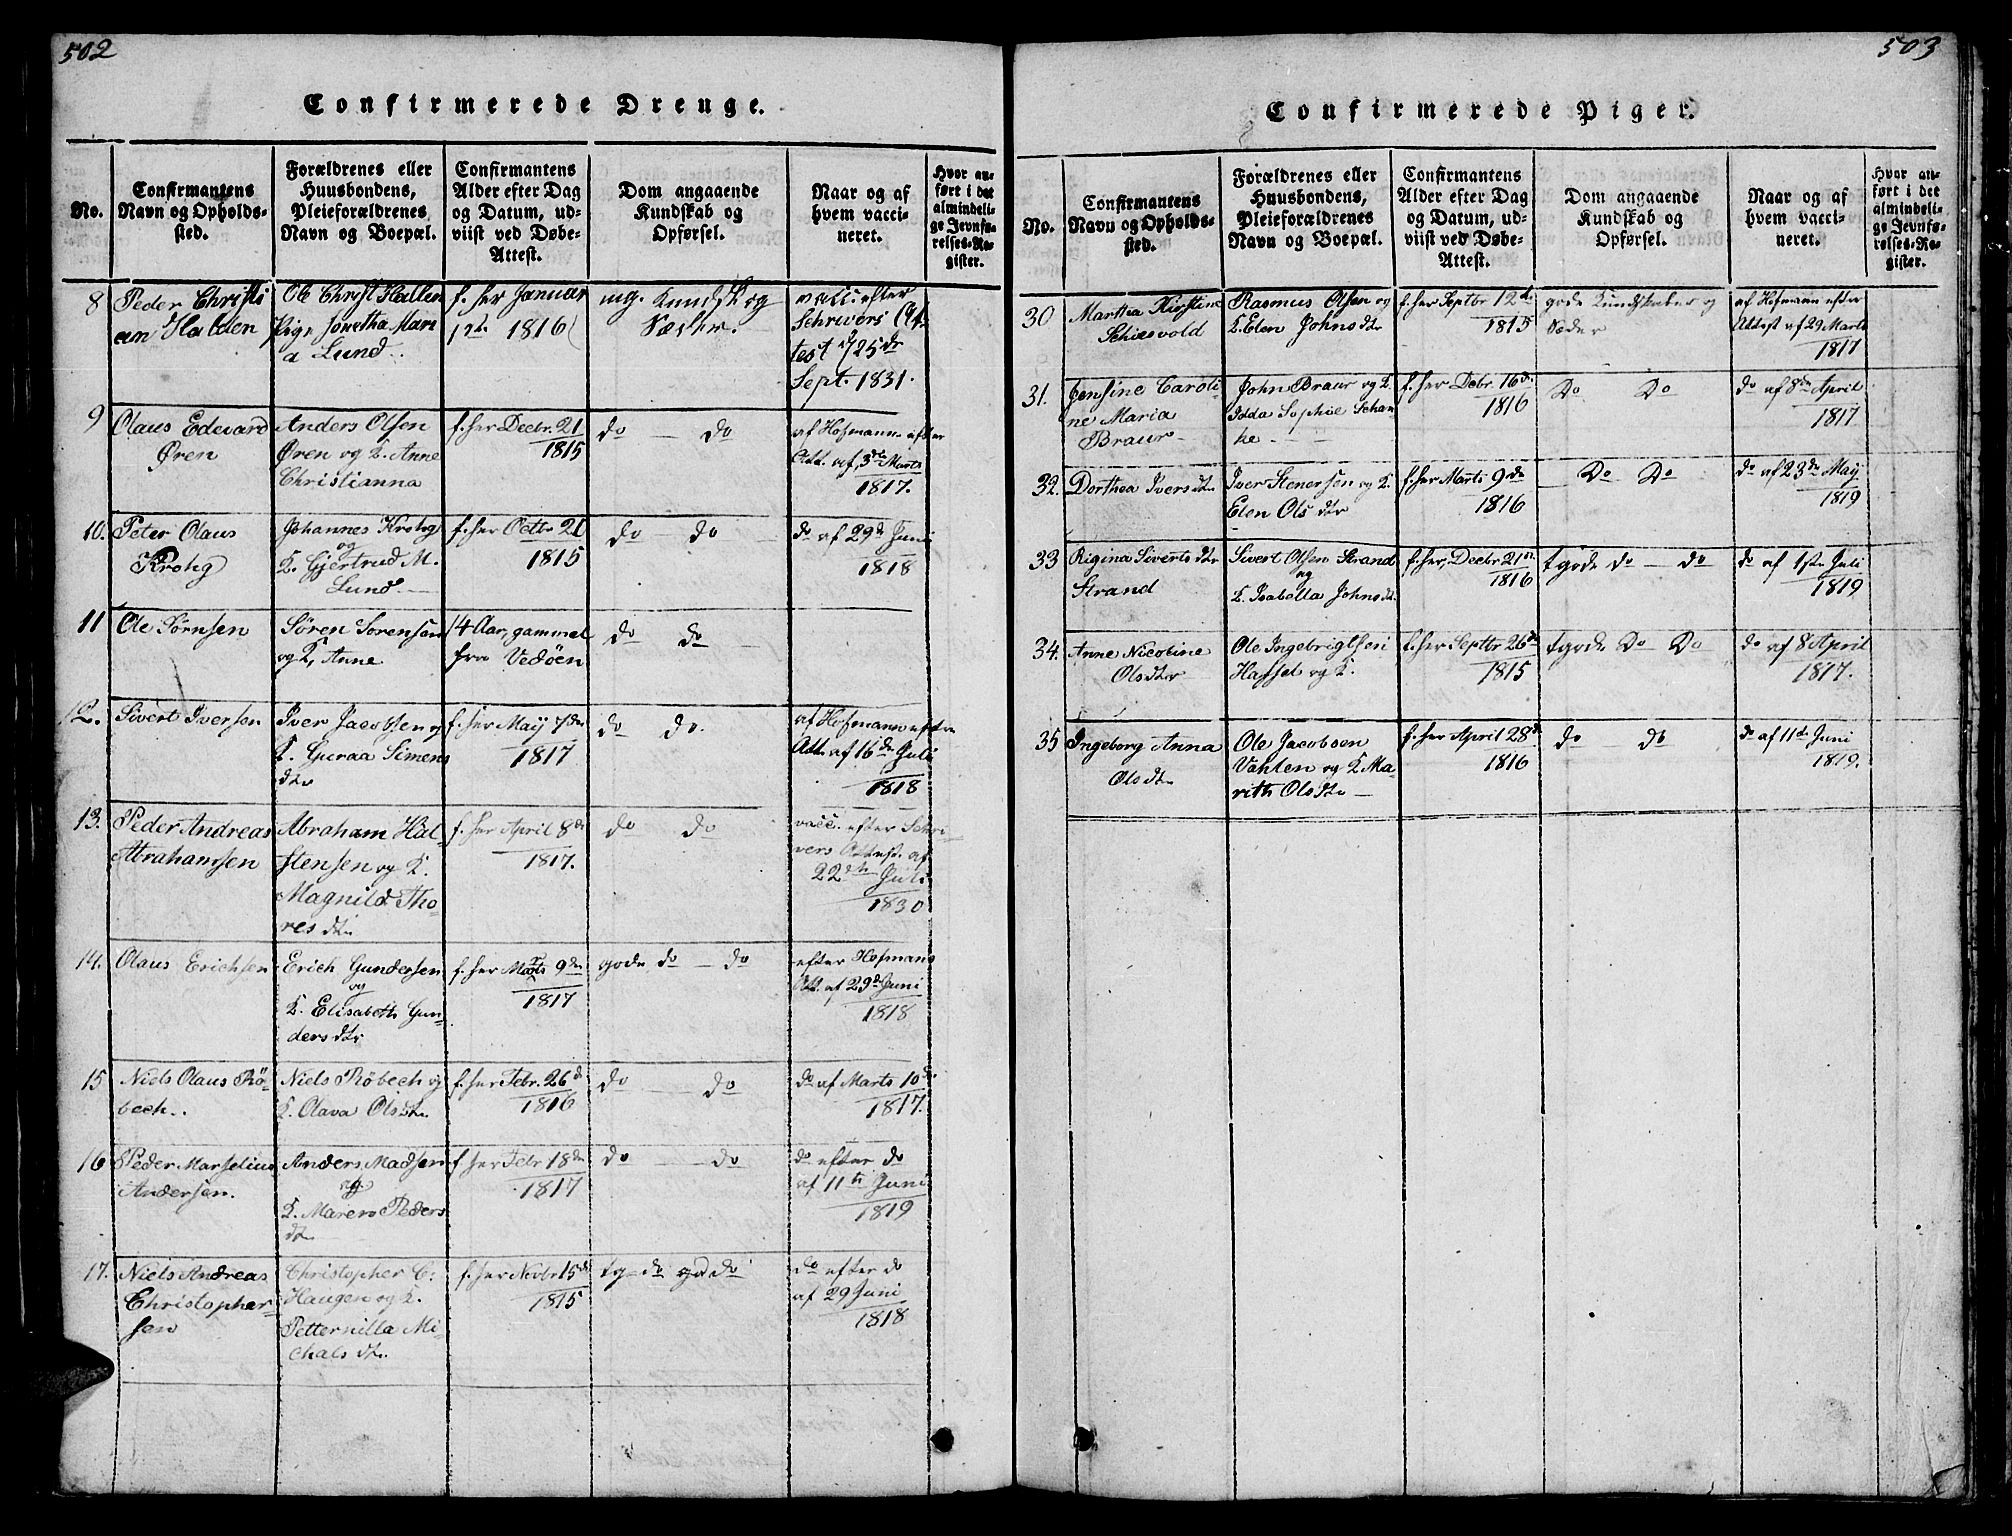 502
Confirmerede Drenge.
No.
Confirmantens
Navn og Opholds-
sted.
Forældrenes eller
Huusbondens,
Pleieforældrenes
Navn og Boepæl.
Confirmantens
Alder efter Dag
og Datum, ud-
viist ved Døbe-
Attest.
Dom angaaende
Kundskab og
Opførsel.
Naar og af
hvem vacci-
neret.
Hvor an-
ført i det
almindeli-
ge Jevnfø-
relses-Re-
gister.
8
Peder Christi
an Halden
Ole Christ Hallen
Pige Jonetha Mari
a Lund.
f. her Januar
1816
mg. Kundsk og
Sæder.
vacc. efter
Schrivers At-
test 25de
Sept. 1831.
9
Olaus Edevard
Øren
Anders Olsen
Øren og K. Anne
Christianna
f. her Decbr. 21
1815
do — do
af Hofmann efter
Att. af 3de Marts
1817.
10.
Peter Olaus
Krohg
Johannes Krohg
og
K. Gjertrud M.
Lund.
f. her Octbr 21
1815
do — do
do af 29de Juni
1818
11
Ole Sørnsen
Søren Sorensen
og K. Anne
14 Aar, gammel
fra Vedøen
do do
12.
Sivert Iversen
Iver Jacobsen og
K. Guraa Simens
dtr
f. her Maij 7de
1817
do do.
af Hofmann efter
Att. af 16de Juli
1818
13.
Peder Andreas
Abrahamsen
Abraham Hal-
stensen og K.
Magnild Tho-
res dtr
f. her April 8de
1817.
do do
vacc. efter Schri-
vers Attest. af
22de Juli
1830
14.
Olaus Erichsen
Erich Gundersen
og
K. Elisabeth Gun-
ders dtr
f. her Marts 9de
1817
gode do — do
efter Hofmans
Att. af 29de Juni
1818
15
Niels Olaus Rö-
bech.
Niels Röbech og
K. Olava Olsdtr
f. her Febr. 26de
1816
do — do
do af Marts 10de
1817.
16
Peder Marselius
Andersen.
Anders Madsen
og
K. Maren Peders
dtr
f her Febr 18de
1817
do — do
do efter do
af 11te Juni
1819
17.
Niels Andreas
Christopher-
sen
Christopher C:
Haugen og K.
Petternilla Mi-
chals dtr
f. her Novbr 15de
1815
tg do do
do efter do
af 29 Juni
1818
503
Confirmerede Piger.
No.
Confirmantens
Navn og Opholds-
sted.
Forældrenes eller
Huusbondens,
Pleieforældrenes
Navn og Boepæl.
Confirmantens
Alder efter Dag
og Datum, ud-
viist ved Døbe-
Attest.
Dom angaaende
Kundskab og
Opførsel.
Naar og af
hvem vacci-
neret.
Hvor an-
ført i det
almindeli-
ge Jevnfø-
relses-Re-
gister.
30
Marthea Kirstine
Schiesvold
Rasmus Olsen og
K. Elen Johnsdtr
f. her Septbr 12te
1815
gode Kundskaber og
Sæder
af Hofmann efter
Attest af 29 Marts
1817
31.
Jensine Caroli
ne Maria
Braur
John Braur og K.
Idda Sophie Schan
ke
f. her Debr. 16de
1816
Do Do
do af 8de April
1817
32.
Dorthea Iversdtr
Iver Stenersen og K.
Elen Ols dtr
f. her Marts 9de
1816
Do Do
do af 23de Maij
1819
33
Rigina Siverts dtr
Strand
Sivert Olsen Strand
og
K. Isabella Johnsdtr
f. her, Decbr 21de
1816
tgode do — do
do af 1ste Juli
1819
34.
Anne Nicoline
Olsdtr
Ole Ingebrigtsen
Hassel og K.
f. her Septbr 26de
1815
tgode Do Do
do af 8 April
1817.
35
Ingeborg Anna
Olsdtr
Ole Jacobsen
Vahlen og K Ma-
rith Olsdtr
f. her April 28de
1816
do — do
do af 11te Juni
1819.